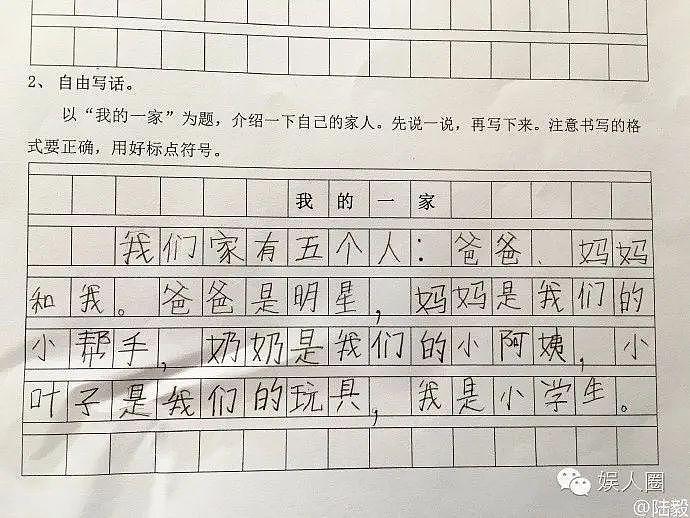 2、自由写话。
以“我的一家”为题，介绍一下自己的家人。先说一说，再写下来。注意书写的格
式要正确，用好标点符号。
我的一家
我们家有五个人：爸爸、妈妈
和我。爸爸是明星，妈妈是我们的
小帮手，奶奶是我们的小阿姨，小
叶子是我们的玩具，我是小学生。
娱人圈
@陆毅